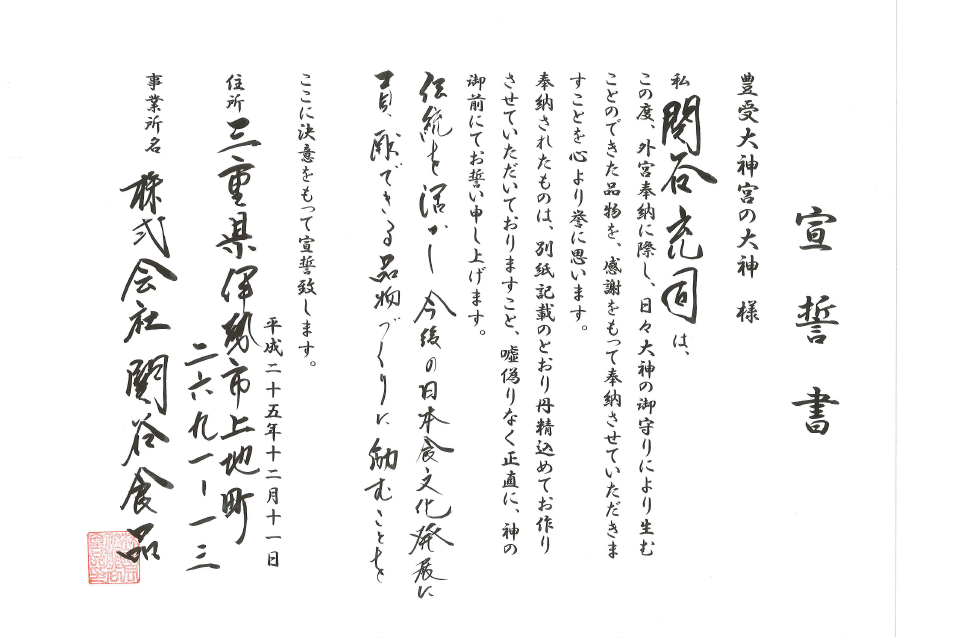 宣誓書
豊受大神宮の大神 様
私 関谷 司 は、
この度、外宮奉納に際し、日々大神の御守りにより生む
ことのできた品物を、感謝をもって奉納させていただきま
すことを心より誉に思います。
奉納されたものは、別紙記載のとおり丹精込めてお作り
させていただいておりますこと、嘘偽りなく正直に、神の
御前にてお誓い申し上げます。
伝統を活かし今後の日本食文化発展に
貢献できる品物づくりに励むことを
ここに決意をもって宣誓致します。
平成二十五年十二月十一日
住所 三重県伊勢市上地町
二六九一ー一三
事業所名 株式会社関谷食品